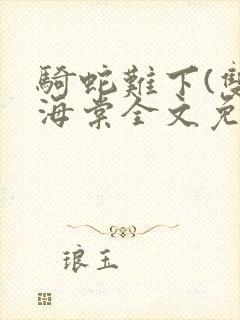 騎蛇難下(雙
海棠全文免
琅玉